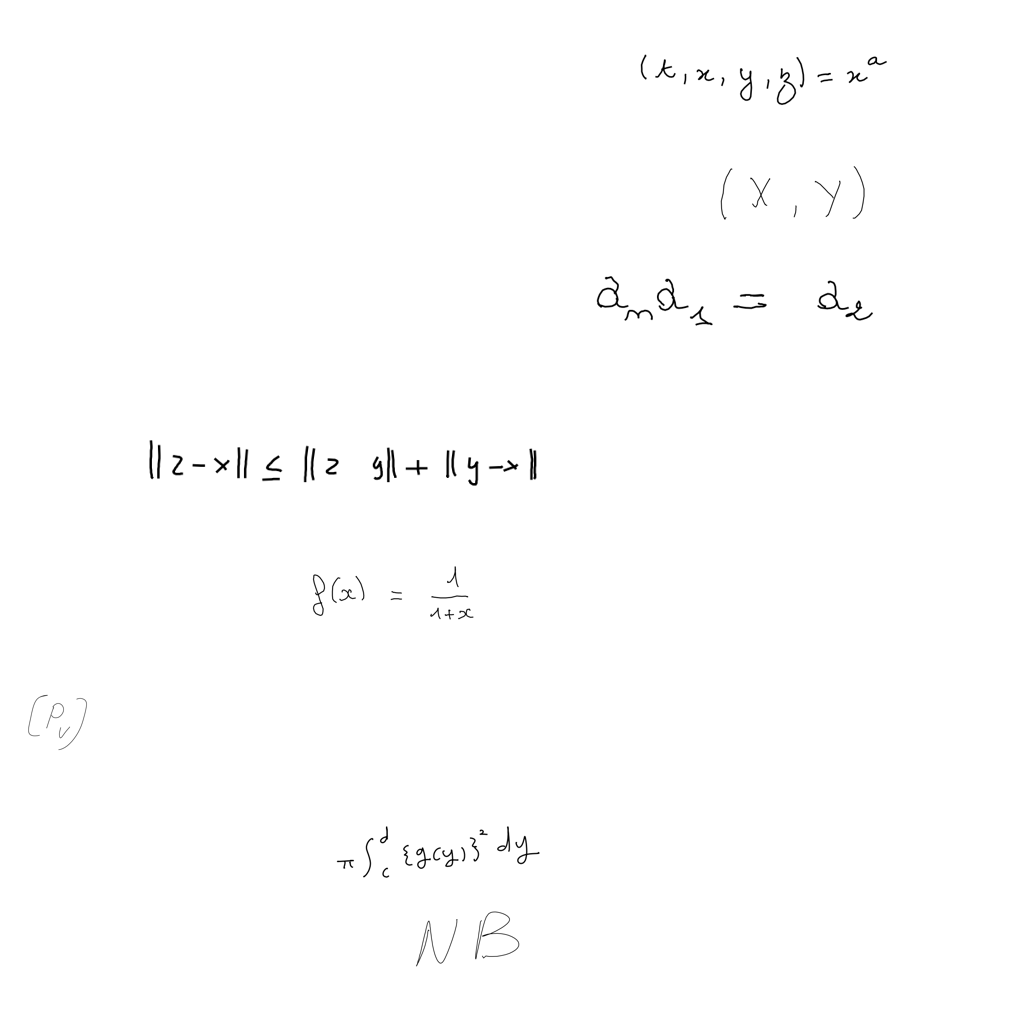 (t, x, y, z) = x^a
(X, Y)
a_n a_1 = a_2
||z - x|| ≤ ||z  y|| + ||y - x||
f(x) = 1/(1+x)
[P_v]
π∫_c^d {g(y)}^2 dy
NB